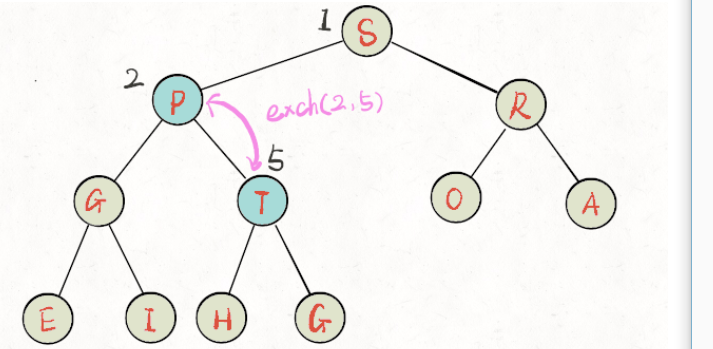 1 S
2 P
exch(2,5)
R
5
G
T
O
A
E
I
H
G